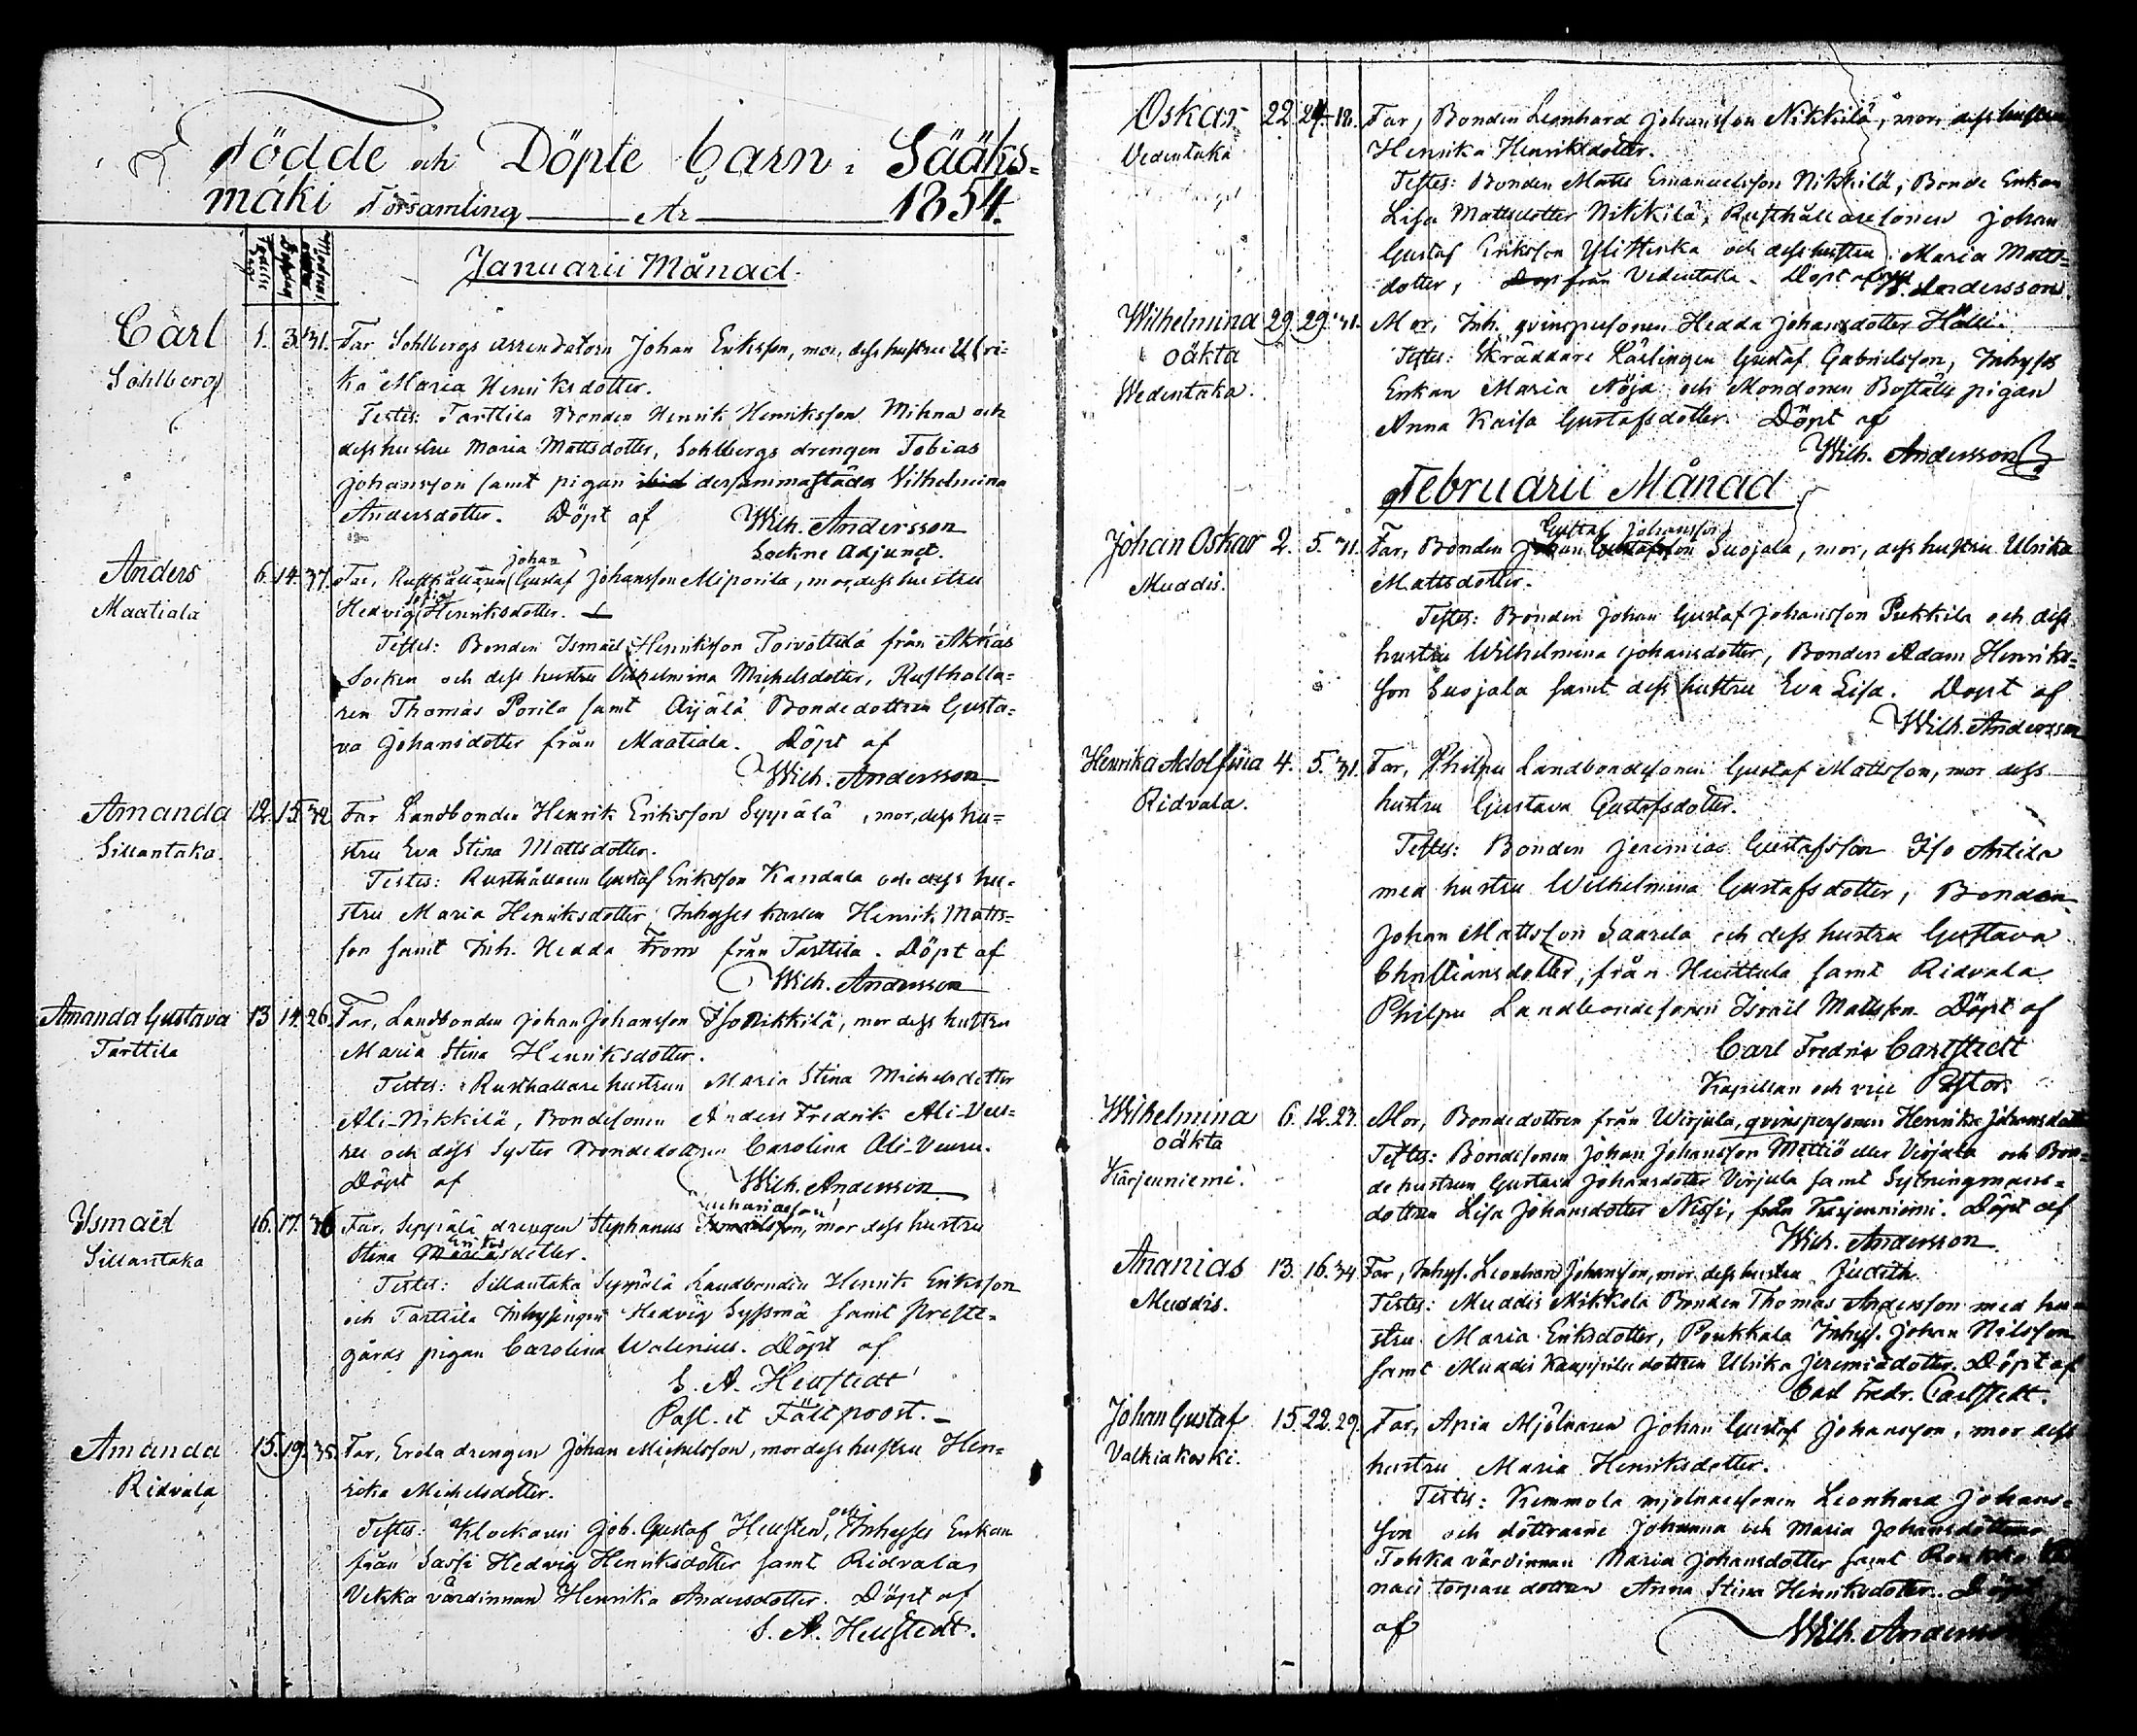 Födde och Döpte Barn i Sääks=
mäki Församling År 1854.
Födelse dag
Januarii Månad
Carl 1. 3. 31. Far Sohlbergs arrendatorn Johan Eriksson, mor, dess hustru Ulri=
Sohlberg ka Maria Henriksdotter.
Testes: Tarttila Bonden Henrik Henriksson Mikna och
dess hustru Maria Mattsdotter, Sohlbergs drengen Tobias
Johansson samt pigan ibid dersammastädes Vilhelmina
Andersdotter. Döpt af Wilh. Andersson
Sockne Adjunct.
Anders 6. 14. 37. Far, Rusthållaren Johan Gustaf Johansson Aliporila, mor, dess hustru
Maatiala Hedvig Sofia Henriksdotter.
Testes: Bonden Ismael Henriksson Toivottula från Akkas
Socken och dess hustru Vilhelmina Michelsdotter, Rusthålla=
ren Thomas Porila samt Arjälä Bondedottren Gusta=
va Johansdotter från Maatiala. Döpt af
Wilh. Andersson
Amanda 12. 15. 42 Far Landbonden Henrik Eriksson Seppälä, mor, dess hu=
Sillantaka. stru Eva Stina Mattsdotter.
Testes: Rusthållaren Gustaf Eriksson Kandala och dess hu=
stru Maria Henriksdotter, Inhyses karlen Henrik Matts=
son samt Inh. Hedda From från Tarttila. Döpt af
Wilh. Andersson
Amanda Gustava 13 14. 26. Far, Landbonden Johan Johansson Iso Nikkilä, mor dess hustru
Tarttila Maria Stina Henriksdotter.
Testes: Rusthållare hustrun Maria Stina Michelsdotter
Ali-Nikkilä, Bondesonen Anders Fredrik Ali-Veu=
ru och dess Syster Bondedottren Carolina Ali-Veuru.
Döpt af Wilh. Andersson
Ismael 16. 17. 36 Far, Seppälä drengen Stephanus Ismaelsson Zachariasson, mor dess hustru
Sillantaka Stina Eriksdotter.
Testes: Sillantaka Seppälä Landbonden Henrik Eriksson
och Tarttila Inhysingen Hedvig Syssmä samt Preste=
gårds pigan Carolina Walenius. Döpt af
S. A. Heustedt
Past. et Fältprost.
Amanda 15. 19. 35. Far, Erola drengen Johan Michelsson, mor dess hustru Hen=
Ridvala rika Michelsdotter.
Testes: Klockaren Joh. Gustaf Heusten, och Inhyses Enkan
från Sassi Hedvig Henriksdotter samt Ridvala
Vekka värdinnan Henrika Andersdotter. Döpt af
S. A. Heustedt.
Oskar 22. 24. 18. Far, Bonden Leonhard Johansson Nikkilä, mor, dess hustru
Vedentaka Henrika Henriksdotter.
Testes: Bonden Matts Emanuelsson Nikkilä, Bonde Enkan
Lisa Mattsdotter Nikkilä, Rusthållaresonen Johan
Gustaf Eriksson Ylittenka och dess hustru Maria Matts=
dotter, från Vedentaka. Döpt af W. Andersson
Wilhelmina 29. 29. 31. Mor, Inh. qvinspersonen Hedda Johansdotter Hölli.
oäkta Testes: Skräddare Lärlingen Gustaf Gabrielsson, Inhyses
Wedentaka. Enkan Maria Nöja och Mondonen Boställs pigan
Anna Kaisa Gustafsdotter. Döpt af
Wilh. Andersson
Februarii Månad
Johan Oskar 2. 5. 31. Far, Bonden Johan Gustafsson Gustaf Johansson Suojala, mor, dess hustru Ulrika
Muddis. Mattsdotter.
Testes: Bonden Johan Gustaf Johansson Pukkila och dess
hustru Wilhelmina Johansdotter, Bonden Adam Henriks=
son Suojala samt dess hustru Eva Lisa. Döpt af
Wilh. Andersson
Henrika Adolfina 4. 5. 31. Far, Philpu Landbondesonen Gustaf Mattsson, mor dess
Ridvala. hustru Gustava Gustafsdotter.
Testes: Bonden Jeremias Gustafsson Iso Antila
med hustru Wilhelmina Gustafsdotter, Bonden
Johan Mattsson Saarela och dess hustru Gustava
Christiansdotter, från Huittula samt Ridvala
Philpu Landbondesonen Israel Mattsson. Döpt af
Carl Fredric Carlstedt
Kapellan och vice Pastor.
Wilhelmina 6. 12. 23. Mor, Bondedottren från Wirjula, qvinspersonen Henrika Johansdotter
oäkta Testes: Bondesonen Johan Johansson Mettiö eller Virjula och Bon=
Kärjenniemi. de hustrun Gustava Johansdotter Virjula samt Sytningmans=
dottren Lisa Johansdotter Nissi, från Kärjenniemi. Döpt af
Wilh. Andersson.
Ananias 13. 16. 34. Far, Inhys. Leonhard Johansson, mor, dess hustru Judith.
Muddis. Testes: Muddis Mikkola Bonden Thomas Andersson med hu=
stru Maria Eriksdotter, Poukkala Inhys. Johan Nilsson
samt Muddis Kauppila dottren Ulrika Jeremiadotter. Döpt af
Carl Fredr. Carlstedt.
Johan Gustaf 15. 22. 29. Far, Apia Mjölnaren Johan Gustaf Johansson, mor dess
Valkiakoski. hustru Maria Henriksdotter.
Testes: Kemmola mjölnaresonen Leonhard Johans=
son och döttrarne Johanna och Maria Johansdöttrar
Tokka värdinnan Maria Johansdotter samt Roukko
torpare dottren Anna Stina Henriksdotter. Döpt
af Wilh. Andersson